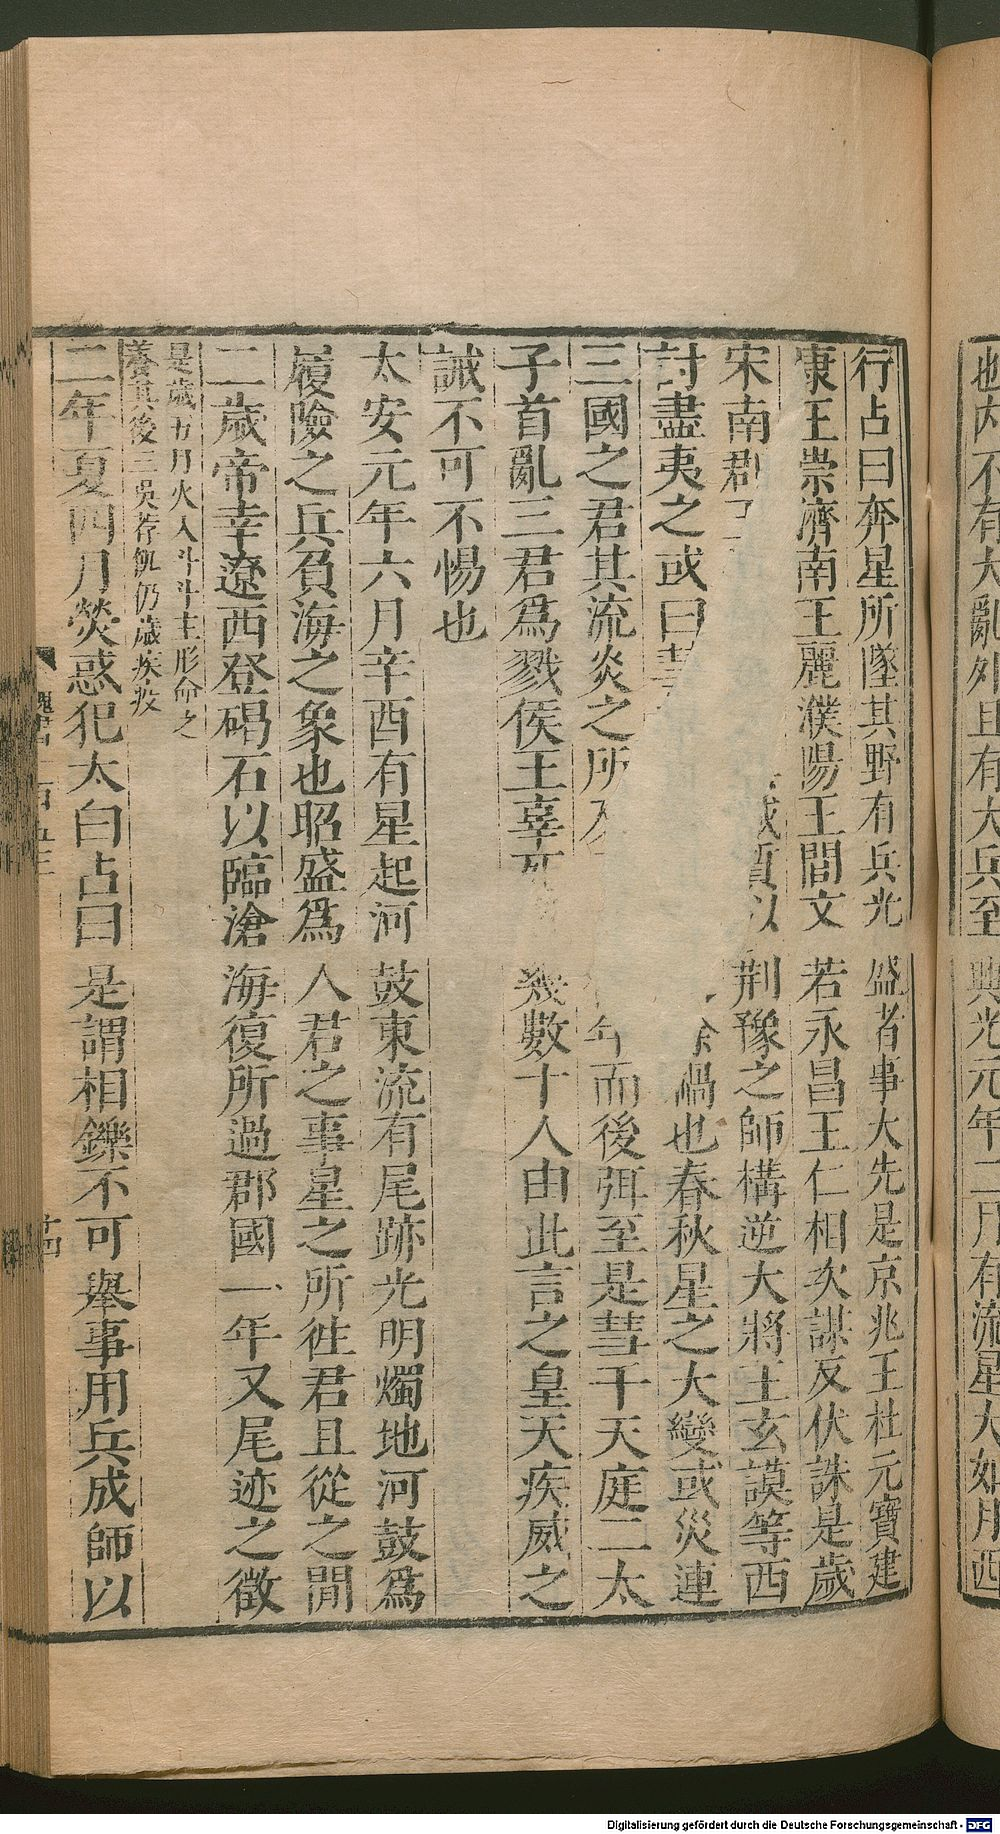 行占曰奔星所墜其野有兵光盛者事大先是京兆王杜元寶建
康王崇濟南王麗濮陽王閭文若永昌王仁相次謀反伏誅是歲
宋南郡 荆豫之師構逆大將王玄謨等西
討盡夷之或曰 禍也春秋星之大變或災連
三國之君其流炎之所 年而後弭至是彗干天庭二太
子首亂三君爲戮侯王辜 幾數十人由此言之皇天疾威之
誡不可不惕也
太安元年六月辛酉有星起河鼓東流有尾跡光明燭地河鼓爲
履險之兵負海之象也昭盛爲人君之事星之所徃君且從之閒
二歲帝幸遼西登碣石以臨滄海復所過郡國一年又尾迹之徵
是歲五月火入斗斗主形命之
養其後三吳荐飢仍歲疾疫
二年夏四月熒惑犯太白占曰是謂相鑠不可舉事用兵成師以
魏書一百五三
十四
也 不有大亂外且有大兵至
興光元年二月有流星大如月西
Digitalisierung gefördert durch die Deutsche Forschungsgemeinschaft - DFG